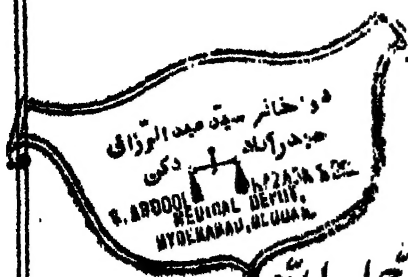 دواخانہ سید عبدالرزاق
حیدرآباد دکن
S. ABDOOL RAZAK &
MEDICAL DEPOT,
HYDERABAD,